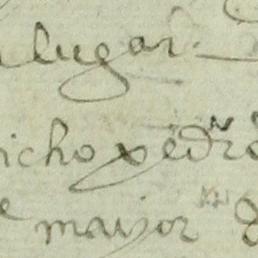 lugar.
icho pedro
e maior